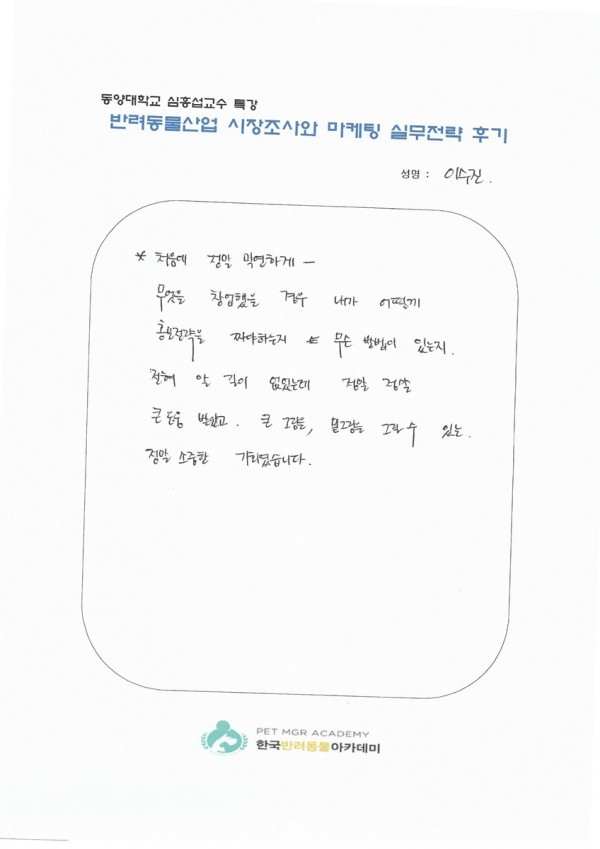 동양대학교 심흥섭교수 특강
반려동물산업 시장조사와 마케팅 실무전략 후기
성명 : 이수진.
* 처음에 정말 막연하게 –
무엇을 창업했을 경우 내가 어떻게
홍보전략을 짜야하는지 무슨 방법이 있는지.
전혀 알 길이 없었는데 정말 정말
큰 도움 받았고. 큰 그림을, 밑그림을 그릴 수 있는.
정말 소중한 기회였습니다.
PET MGR ACADEMY
한국반려동물아카데미